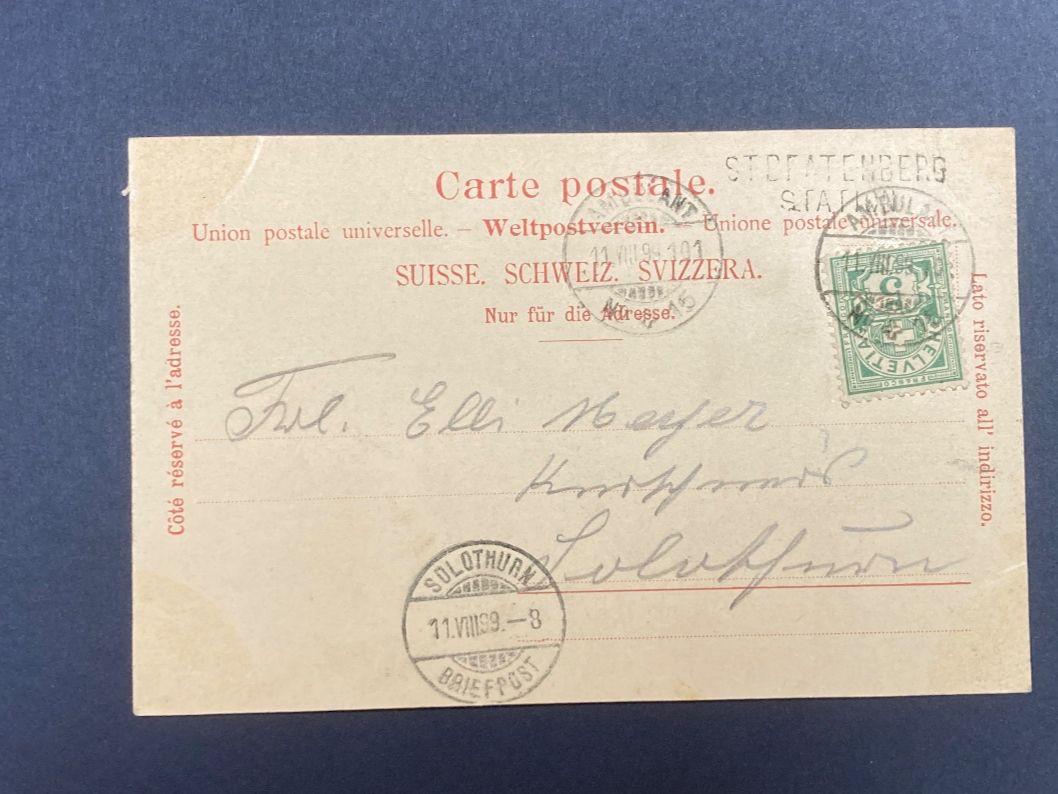 Carte postale.
ST BEATENBERG
STATION
Union postale universelle. — Weltpostverein. — Unione postale universale.
SUISSE. SCHWEIZ. SVIZZERA.
Nur für die Adresse.
Côté réservé à l'adresse.
Lato riservato all' indirizzo.
AMBULANT
11.VIII.99 101
No 15
AMBULANT
11.VIII.99
5
HELVETIA
FRANCO
Frl. Elli Meyer
Solothurn
SOLOTHURN
11.VIII.99.–8
BRIEFPOST